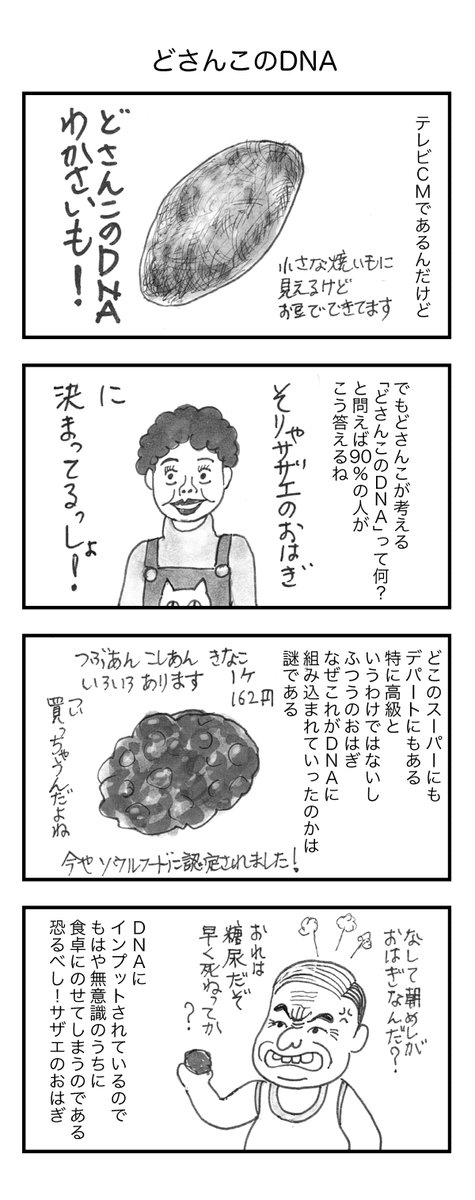 どさんこのDNA
テレビCMであるんだけど
小さな焼いもに
見えるけど
お豆でできてます
どさんこのDNA
わかさいも!
でもどさんこが考える
「どさんこのDNA」って何?
と問えば90%の人が
こう答えるね
そりゃサザエのおはぎ
に
決まってるっしょ!
どこのスーパーにも
デパートにもある
特に高級と
いうわけではないし
ふつうのおはぎ
なぜこれがDNAに
組み込まれていったのかは
謎である
つぶあん こしあん きなこ
いろいろあります
1ケ
162円
つい
買っちゃうんだよね
今やソウルフードに認定されました!
なして朝めしが
おはぎなんだ?
おれは
糖尿だぞ
早く死ねってか
?
DNAに
インプットされているので
もはや無意識のうちに
食卓にのせてしまうのである
恐るべし!サザエのおはぎ